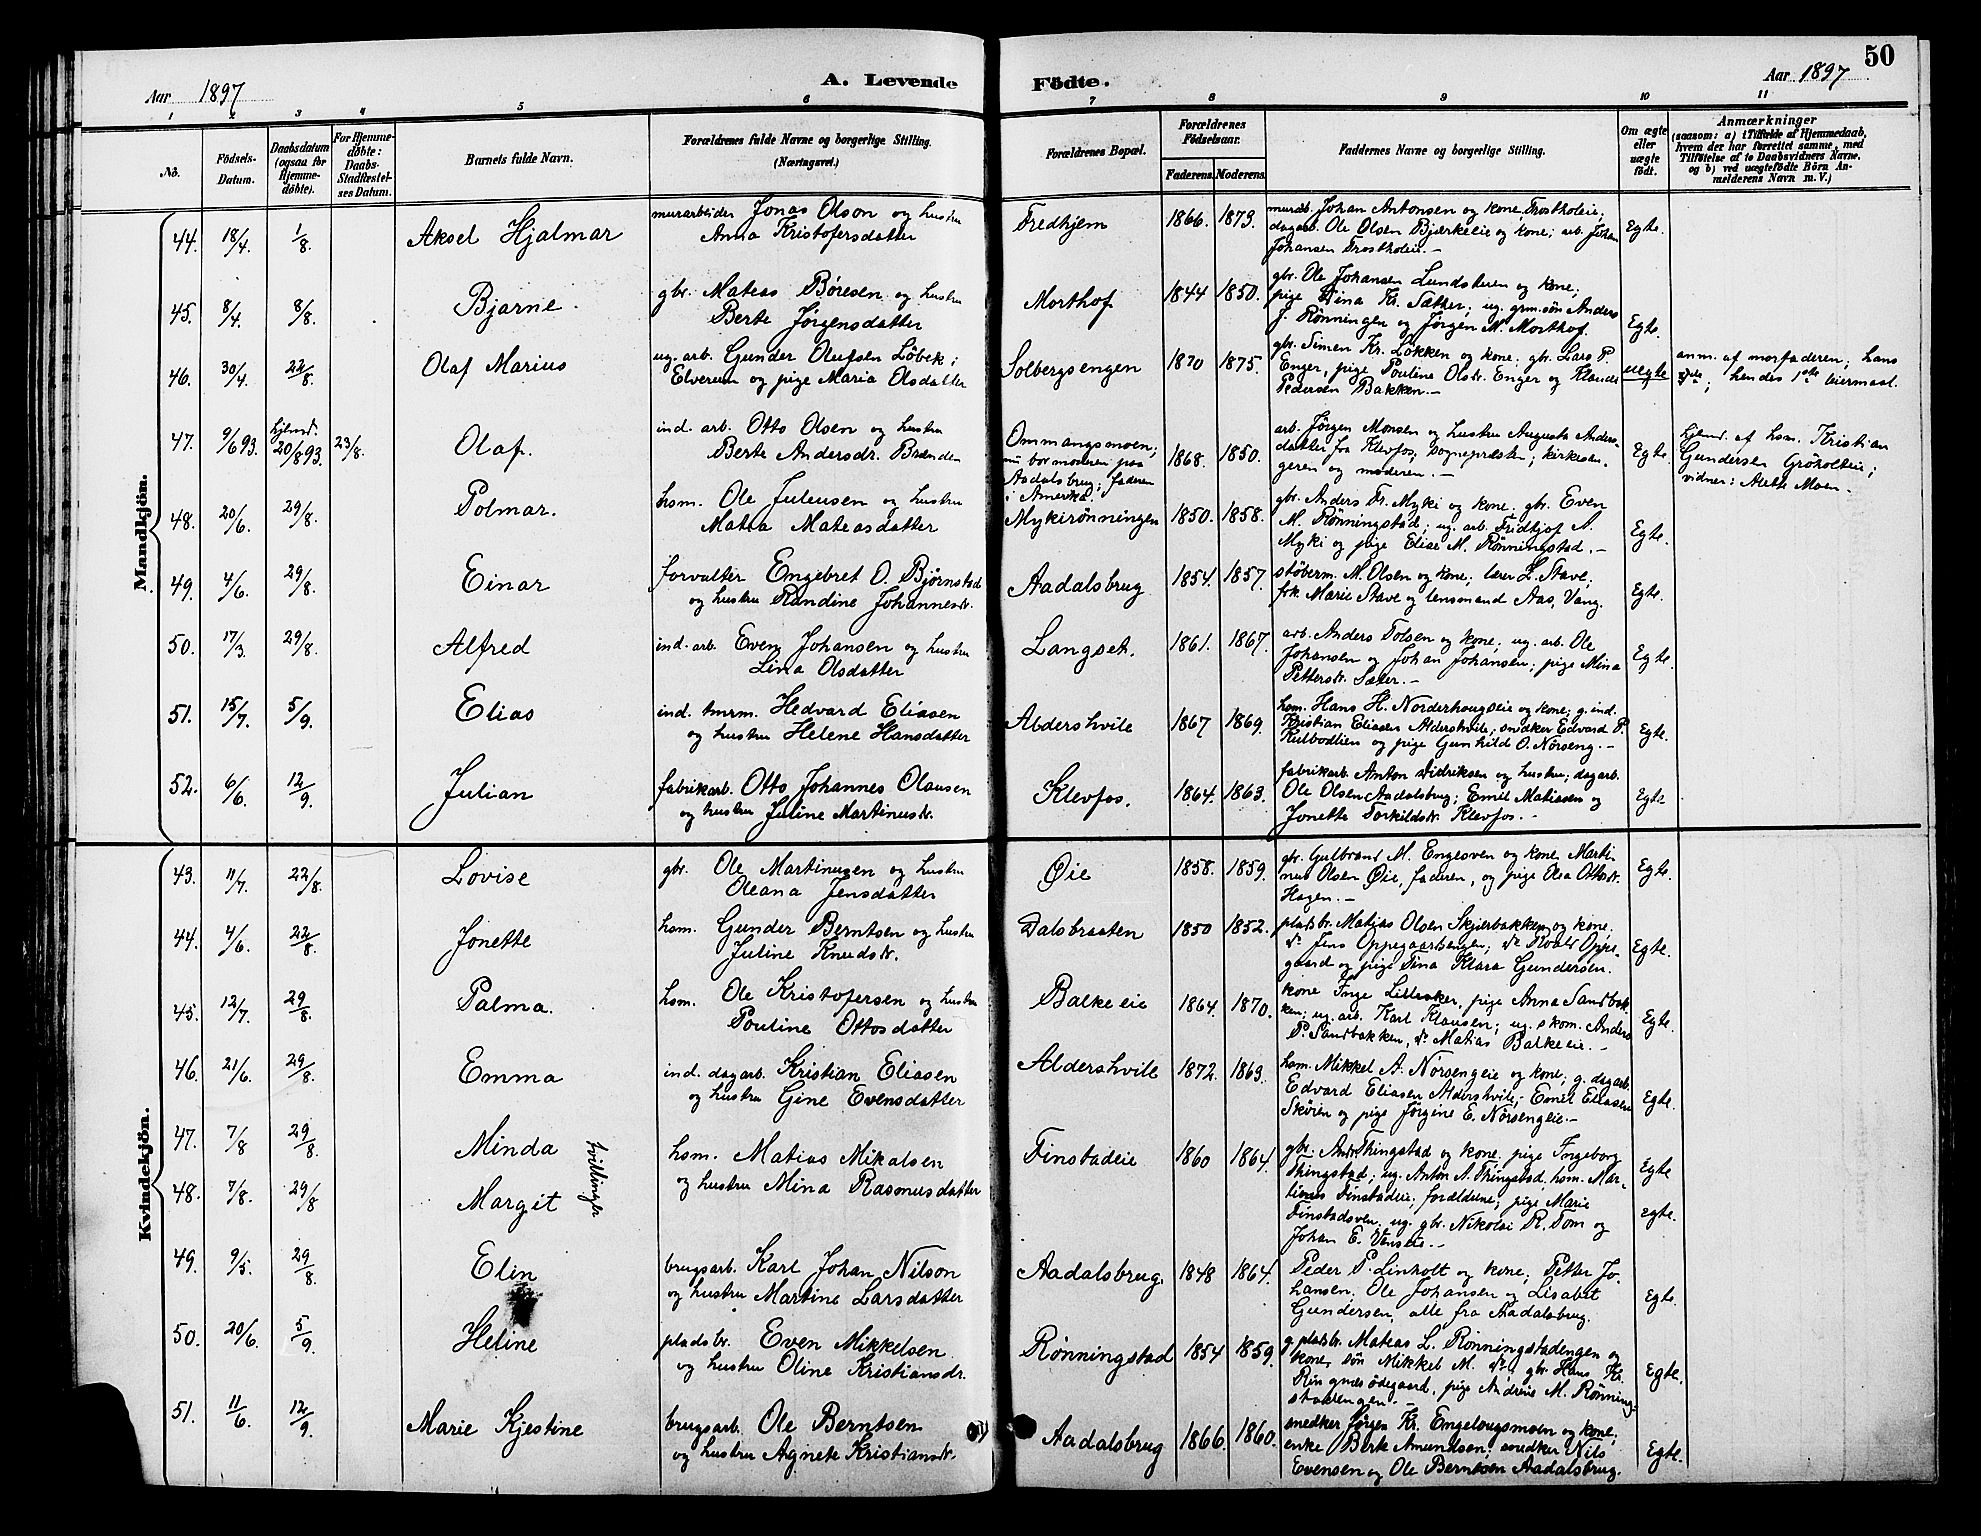 50
Aar 1897
A. Levende Fødte.
Aar 1897
1 2 3 4 5 6 7 8 9 10 11
No.
Fødsels-Datum.
Daabsdatum (ogsaa for Hjemmedøbte).
For Hjemmedøbte: Daabs-Stadfæstelses Datum.
Barnets fulde Navn.
Forældrenes fulde Navne og borgerlige Stilling. (Næringsvei.)
Forældrenes Bopæl.
Forældrenes Fødselsaar.
Faderens. Moderens.
Faddernes Navne og borgerlige Stilling.
Om ægte eller uægte født.
Anmærkninger
(saasom: a) i Tilfælde af Hjemmedaab, hvem der har forrettet samme, med Tilføielse af to Daabsvidners Navne, og b) ved uægtefødte Børn Anmelderens Navn m. V.)
Mandkjön.
44. 18/4. 1/8. Aksel Hjalmar
murarbeider Jonas Olson og hustru
Anna Kristofersdatter
Fredhjem 1866. 1873.
murarb. Johan Antonsen og kone, Frostholeie;
dagarb. Ole Olsen Bjærkeeie og kone; arb. Johan
Johansen Frostholeie.—
Egte.
45. 8/4. 8/8. Bjarne
gbr. Mateas Børesen og hustru
Berte Jørgensdatter
Morthof 1844 1850.
gbr. Ole Johansen Lundsteren og kone;
pige Stina Kr. Sæther; ug. grm.søn Anders
J. Rønningen og Jørgen M. Morthof.
Egte.
46. 30/4. 22/8. Olaf Marius
ug. arb. Gunder Olufsen Löbek;
Elverum og pige Maria Olsdatter
Solbergsengen 1870 1875.
gbr. Simen Kr. Løkken og kone; gbr. Lars P.
Enger, pige Pouline Olsdr. Enger og Klaus
Pedersen Bakken.—
uegte
anm. af morfaderen; hans
; hendes 1ste leiermaal.
47. 9/6 93. hjemd. 20/8 93. 23/8. Olaf.
ind. arb. Otto Olsen og hustru
Berte Andersdr. Brænde
Ommangsmoen;
nu bor moderen paa
Aadalsbrug; faderen
i Amerika.
1868. 1850.
arb. Jørgen Monsen og hustru Augusta Anders-
datter fra Klevfos; sognepræsten; kirkesan-
geren og moderen.—
Egte.
hjemd. af hsm. Kristian
Gundersen Gröholteie;
vidner: Alette Moen.
48. 20/6. 29/8. Polmar.
hsm. Ole Juleusen og hustru
Matea Mateasdatter
Mykirønningen 1850. 1858.
gbr. Anders Fr. Myki og kone; gbr. Even
M. Rønningstad; ug. arb. Fridtjof A.
Myki og pige Elise M. Rønningstad.—
Egte.
49. 4/6. 29/8. Einar
forvalter Engebret O. Bjørnstad
og hustru Randine Johannesdr.
Aadalsbrug 1854. 1857.
støberm. M. Olsen og kone; lærer L. Stave;
frk. Marie Stave og lensmand Aas, Vang.
Egte.
50. 17/3. 29/8. Alfred
ind. arb. Even Johansen og hustru
Lina Olsdatter
Langset. 1861. 1867.
arb. Anders Tolsen og kone; ug. arb. Ole
Johansen og Johan Johansen; pige Mina
Pettersdr. Sæter.—
Egte.
51. 15/7. 5/9. Elias
ind. tmrm. Hedvard Eliasen
og hustru Helene Hansdatter
Aldershvile 1867 1869.
hsm. Hans H. Norderhougseie og kone; g. ind.
Kristian Eliasen Aldershvile; snedker Edvard P.
Kulbodlien og pige Gunhild O. Nörseng.—
Egte.
52. 6/6. 12/9. Julian
fabrikarb. Otto Johannes Olausen
og hustru Juline Martinusdr.
Klevfos. 1864. 1863.
fabrikarb. Anton Didriksen og hustru; dagarb.
Ole Olsen Aadalsbrug; Emil Matiasen og
Jonette Torkildsdr. Klevfos.—
Egte
Kvindekjön.
43. 11/7. 22/8. Lovise
gbr. Ole Martinusen og hustru
Oleana Jensdatter
Øie 1858. 1859.
gbr. Gulbrand M. Engesven og kone, Marti-
nus Olsen Øie, faderen, og pige Olea Ottosdr.
Hagen.—
Egte.
44. 4/6. 22/8. Jonette
hsm. Gunder Berntsen og hustru
Juline Knudsdr.
Dalsbraaten 1850 1852.
pladsbr. Matias Olsen Skjærbakken og kone,
do Jens Oppegaardengen; do Roald Oppe-
gaard og pige Tina Klara Gundersen.
Egte.
45. 12/7. 29/8. Palma.
hsm. Ole Kristofersen og hustru
Pouline Ottosdatter
Balkeeie 1864. 1870.
kone Inge Lilleaker, pige Anna Sandbak-
ken; ug. arb. Karl Klausen; ug. skom. Anders
P. Sandbakken, do Matias Balkeeie.—
Egte.
46. 21/6. 29/8. Emma
ind. dagarb. Kristian Eliasen
og hustru Gine Evensdatter
Aldershvile 1872. 1863.
hsm. Mikkel A. Nörsengeie og kone; g. dagarb.
Edvard Eliasen Aldershvile; Emil Eliasen
Skøien og pige Jørgine E. Nörsengeie—
Egte.
47. 7/8 29/8. Minda
48. 7/8. 29/8 Margit
tvillinger
hsm. Matias Mikalsen
og hustru Mina Rasmusdatter
Finstadeie 1860 1864.
gbr. Andr. Thingstad og kone; pige Ingeborg
Thingstad; ug. Anton A. Thingstad, hsm. Mar-
tinus Finstadeie, forældrene; pige Marie
Finstadsven. ug. gbr. Nikolai R. Tom og
Johan E. —
Egte
Egte.
49. 9/5. 29/8. Elin
brugsarb. Karl Johan Nilson
og hustru Martine Larsdatter
Aadalsbrug. 1848 1864.
Peder P. Linholt og kone; Petter Jo-
hansen, Ole Johansen og Lisabet
Gundersen, alle fra Aadalsbrug.
Egte.
50. 20/6. 5/9. Heline
pladsbr. Even Mikkelsen
og hustru Oline Kristiansdr.
Rønningstad 1854 1859.
g. pladsbr. Mateas L. Rønningstadengen og
kone, søn Mikkel M. do, gbr. Hans Kr.
Ringnesødegaard, pige Andrine M. Rønning-
stadengen.—
Egte.
51. 11/6 12/9. Marie Kjestine
brugsarb. Ole Berntsen
og hustru Agnete Kristiansdr.
Aadalsbrug 1866. 1860.
snedker Jørgen Kr. Engelaugsmoen og kone,
enke Berte Amundsen; snedker Nils
Evensen og Ole Berntsen Aadalsbrug.
Egte.